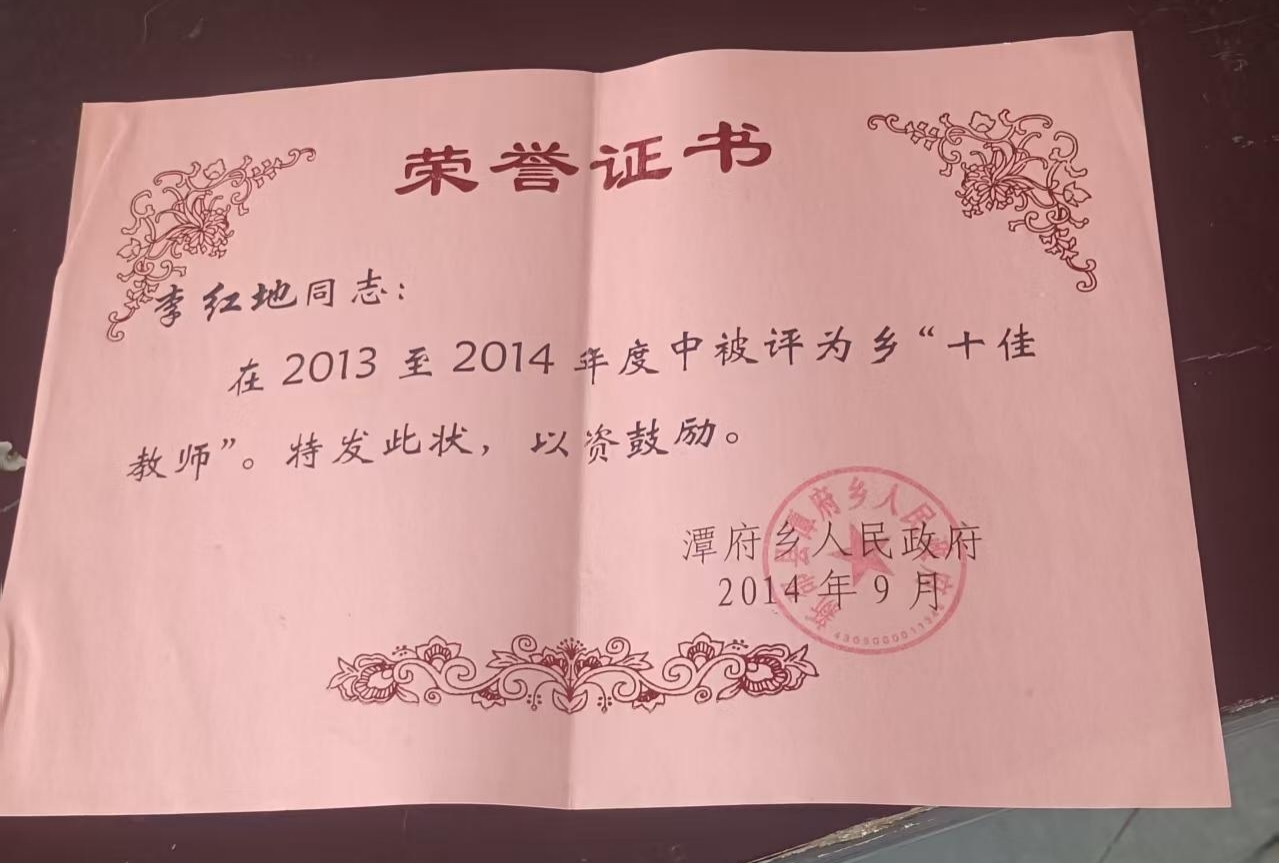 荣誉证书
李红地同志：
在 2013 至 2014 年度中被评为乡“十佳
教师”。特发此状，以资鼓励。
潭府乡人民政府
2014 年 9 月
新邵县潭府乡人民政府